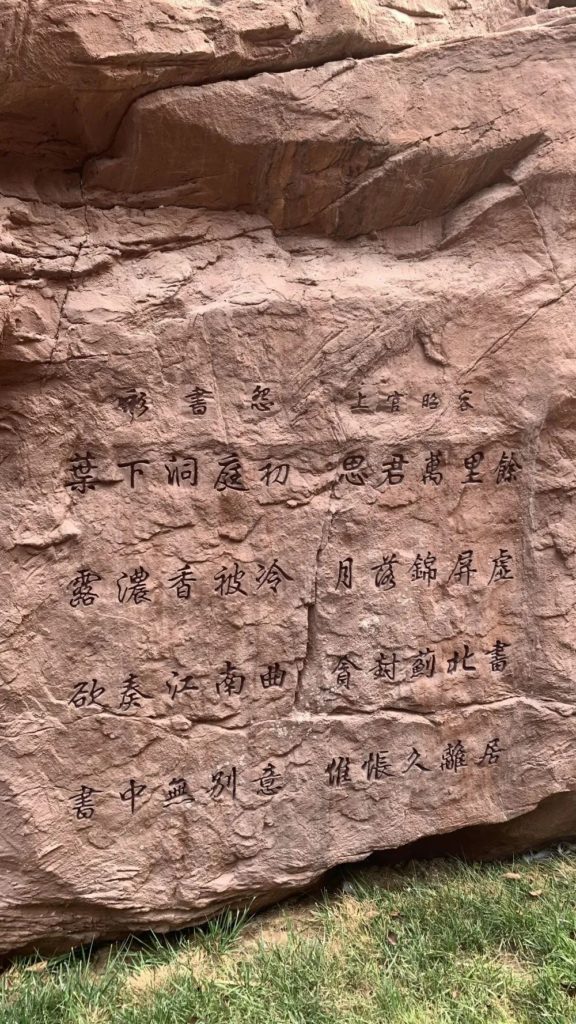 彩書怨 上官昭容
葉下洞庭初 思君萬里餘
露濃香被冷 月落錦屏虛
欲奏江南曲 貪封薊北書
書中無別意 惟悵久離居